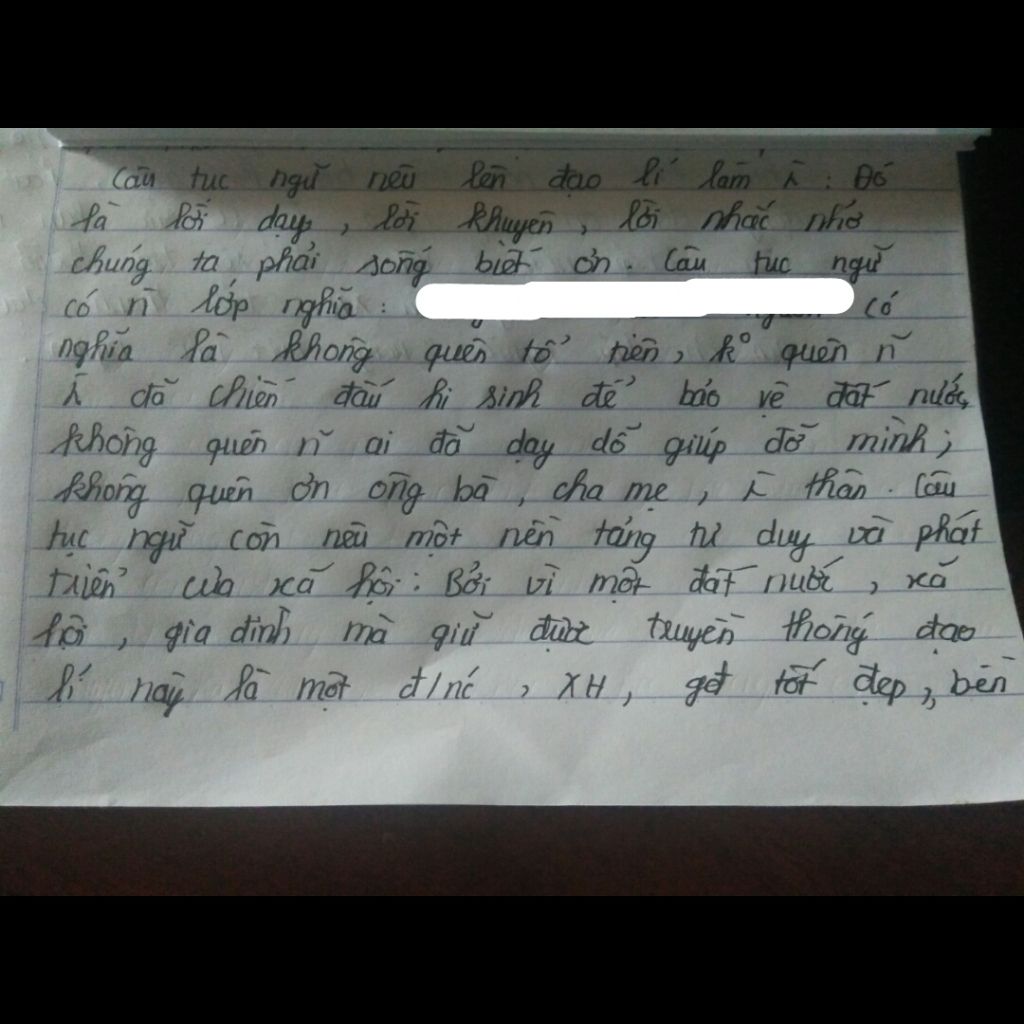 Câu tục ngữ nêu lên đạo lí làm λ : Đó
là lời dạy, lời khuyên, lời nhắc nhở
chúng ta phải sống biết ơn. Câu tục ngữ
có ñ lớp nghĩa : có
nghĩa là không quên tổ tiên, k° quên ñ
λ đã chiến đấu hi sinh để bảo vệ đất nước,
không quên ñ ai đã dạy dỗ giúp đỡ mình;
không quên ơn ông bà, cha mẹ, λ thân. Câu
tục ngữ còn nêu một nền tảng tư duy và phát
triển của xã hội : Bởi vì một đất nước, xã
hội, gia đình mà giữ được truyền thống đạo
lí này là một đ/nc , XH, gđ tốt đẹp, bền